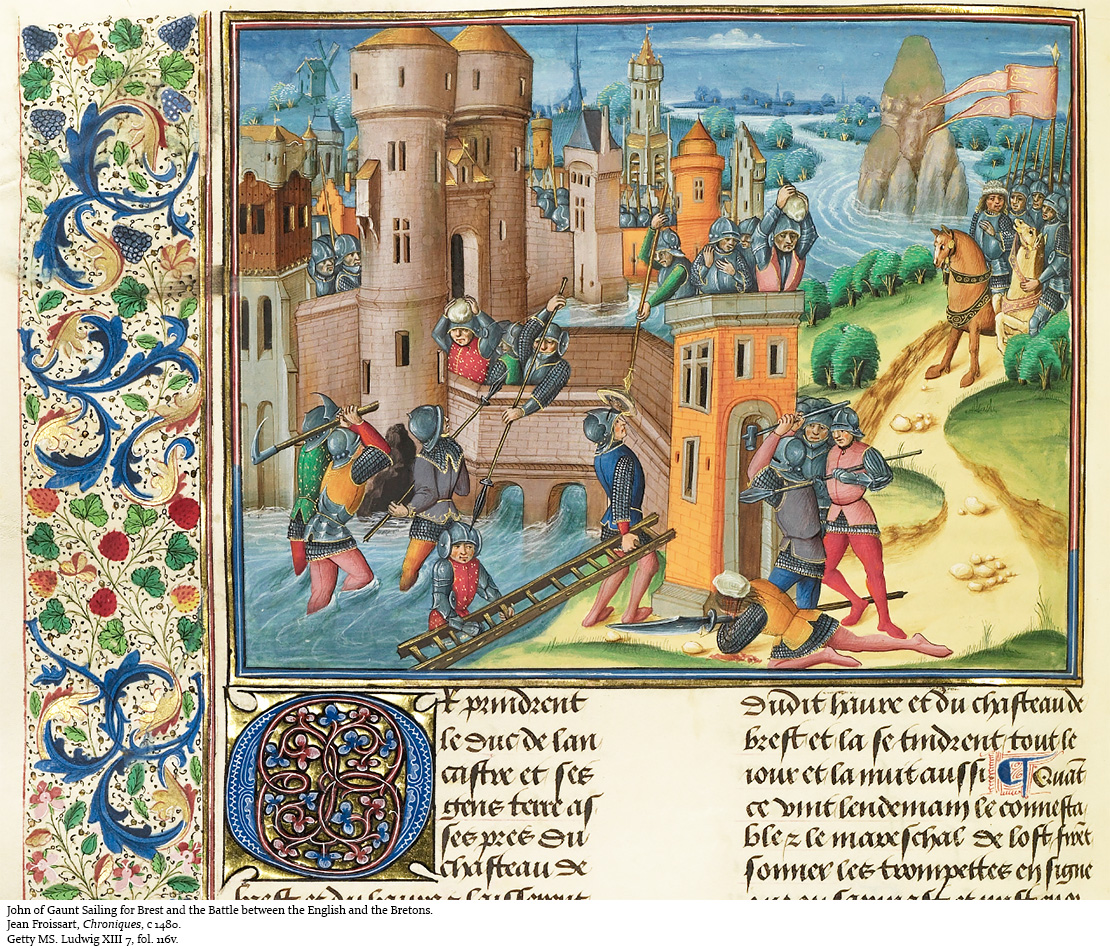 Or prindrent
le duc de lan
castre et ses
gens terre as
ses pres du
chasteau de
brest et du havre
dudit havre et du chasteau de
brest et la se tindrent tout le
iour et la nuit aussi ¶ Quāt
ce vint lendemain le connesta
ble ⁊ le mareschal de lost firēt
sonner les trompettes en signe
John of Gaunt Sailing for Brest and the Battle between the English and the Bretons.
Jean Froissart, Chroniques, c 1480.
Getty MS. Ludwig XIII 7, fol. 116v.